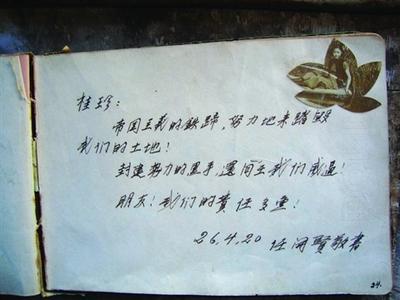 桂珍：
帝国主义的鉄蹄，努力地来踏毀
我们的土地！
封建势力的黑手，還向我们威逼！
朋友！我们的責任多重！
26.4.20 任 賢敬書
29.